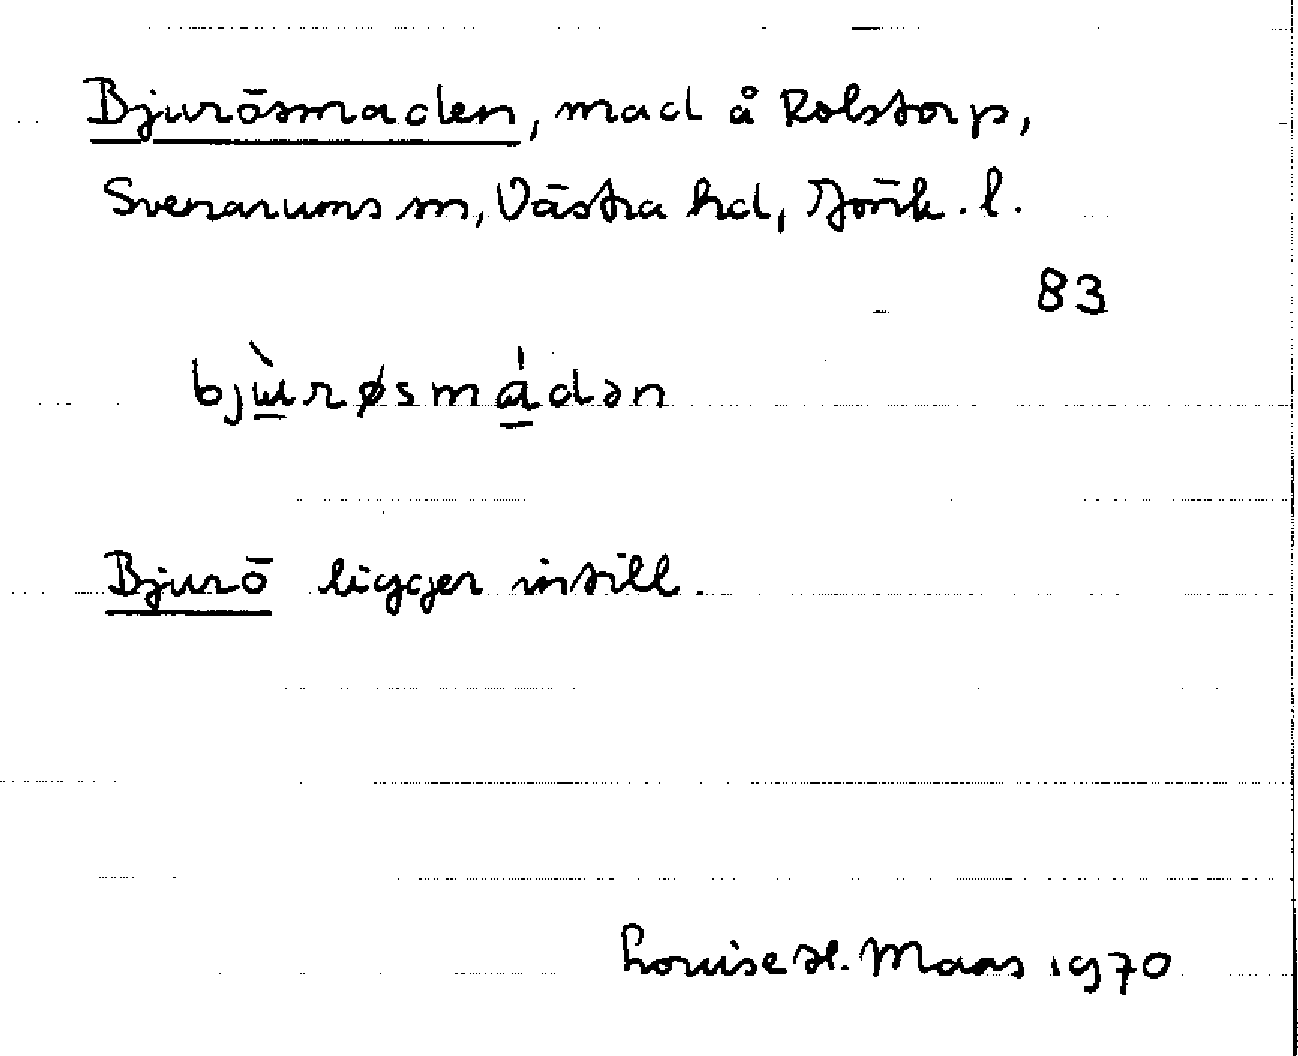 Bjurösmaden, mad å Rolstorp,
Svenarums sn, Västra hd, Jönk. l.
83
bjɯ̱̀røsmá̱dən
Bjurö ligger intill.
Louise H. Maas 1970